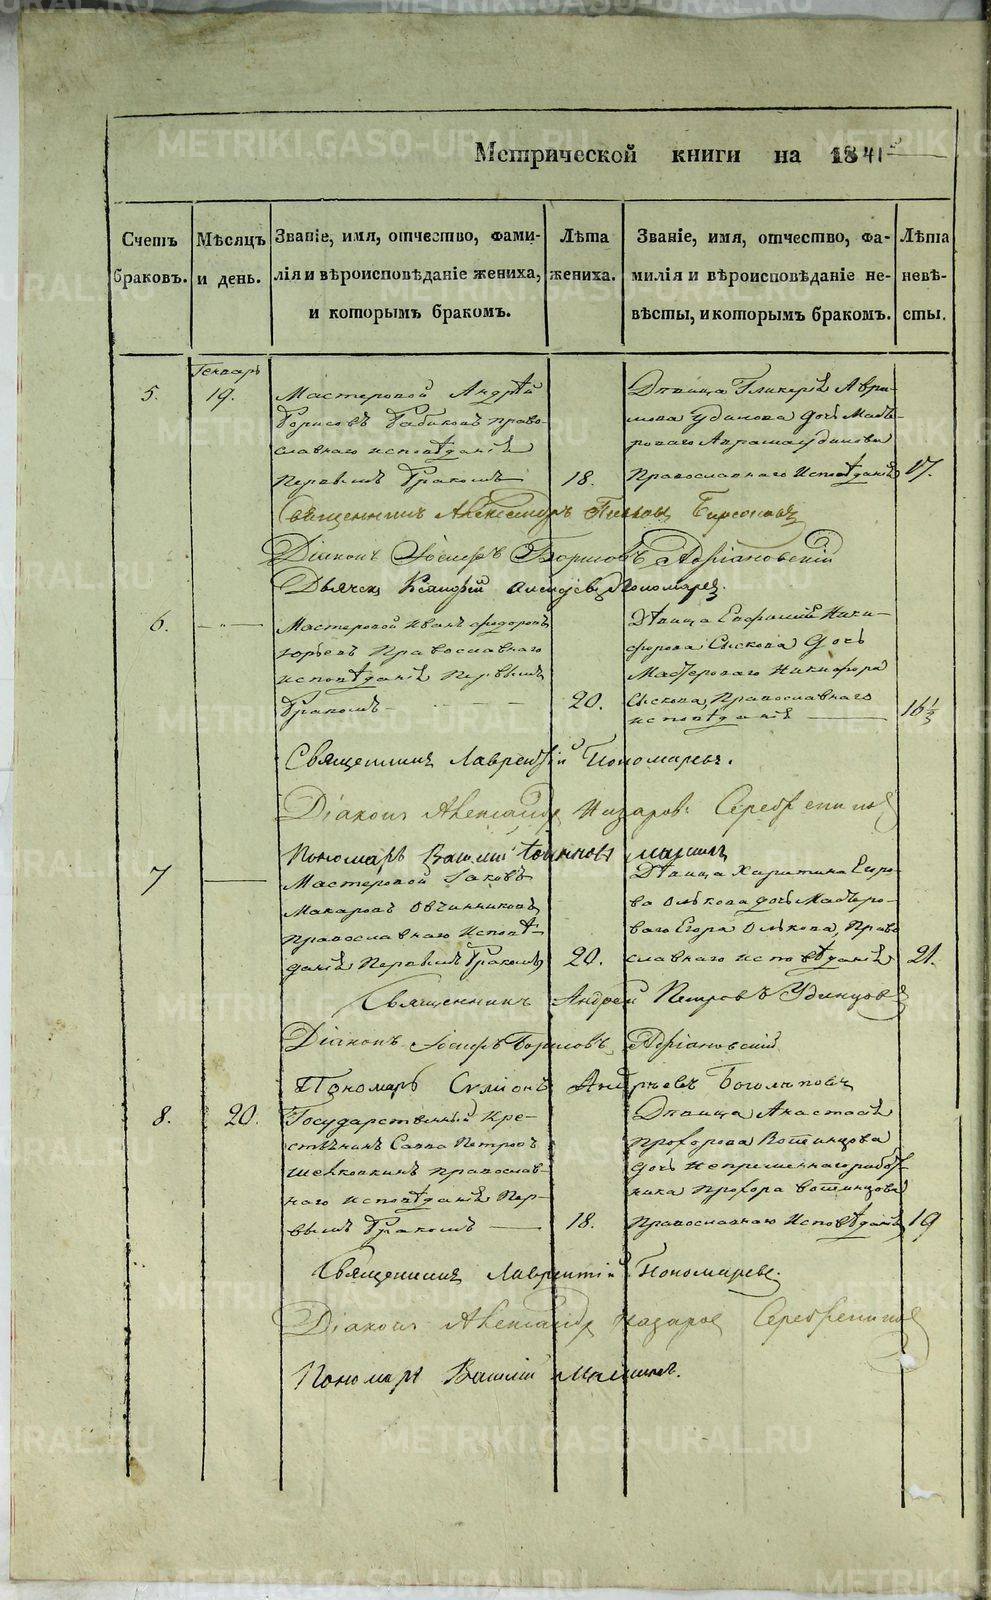 Метрической книги на 1841
Счетъ браковъ.
Мѣсяцъ и день.
Званіе, имя, отчество, фами-
лія и вѣроисповѣданіе жениха,
и которымъ бракомъ.
Лѣта
жениха.
Званіе, имя, отчество, фа-
милія и вѣроисповѣданіе не-
вѣсты, и которымъ бракомъ.
Лѣта
невѣ-
сты.
Генварь
5.
19.
Мастеровой Андрей
Борисовъ Бабиковъ право-
славнаго исповѣданія
Первымъ бракомъ
18.
Дѣвица Гликерія Авра-
мова Удинова дочь Масте-
роваго Аврама Удинова
Православнаго Исповѣданія
17.
Священникъ Александръ
Діаконъ Іосифъ Борисовъ Адріановскій
Дьячекъ Ксенофонтъ Алексѣевъ Пономаревъ.
6.
Мастеровой Иванъ Федоровъ
Юрьевъ Православнаго
исповѣданія Первымъ
бракомъ
20.
Дѣвица Евфимія Ники-
форова Сыскова дочь
Мастероваго Никифора
Сыскова, Православнаго
исповѣданія
16 1/2
Священникъ Лаврентій Пономаревъ.
Діаконъ Александръ Назаровъ Серебренниковъ
Пономарь Василій
7
Мастеровой Іаковъ
Макаровъ Овчинниковъ
православнаго Исповѣ-
данія Первымъ бракомъ
20.
Дѣвица Харитина Егоро-
ва Олькова дочь Мастеро-
ваго Егора Олькова, Право-
славнаго исповѣданія
21.
Священникъ Андрей Петровъ Удинцовъ
Діаконъ Іосифъ Борисовъ Адріановскій
Пономарь Симеонъ Андреевъ Боголѣповъ
8.
20.
Государственный Кре-
стьянинъ Савва Петровъ
Шелковкинъ православ-
наго исповѣданія Пер-
вымъ бракомъ
18.
Дѣвица Анастасія
Прохорова Вотинцова
дочь непременнаго работ-
ника Прохора Вотинцова
Православнаго Исповѣданія
19
Священникъ Лаврентій Пономаревъ.
Діаконъ Александръ Назаровъ Серебренниковъ
Пономарь Василій
METRIKI.GASO-URAL.RU